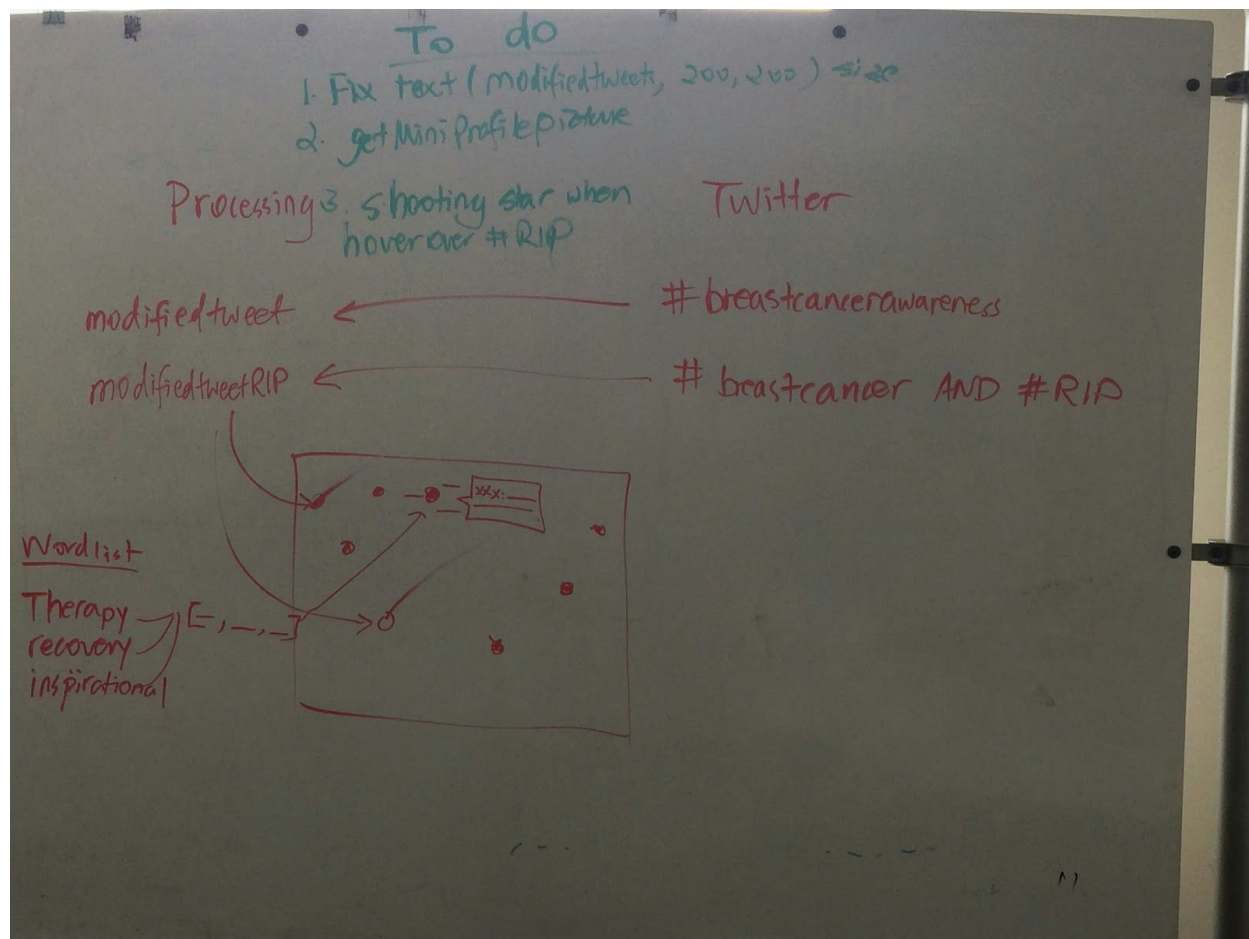 To do
1. Fix text (modifiedtweets, 200, 200) size
2. getMiniProfilepicture
3. shooting star when
hover over #RIP
Processing
Twitter
modifiedtweet
#breastcancerawareness
modifiedtweetRIP
# breastcancer AND #RIP
xxx:
Wordlist
Therapy
recovery
inspirational
[-, -, -]